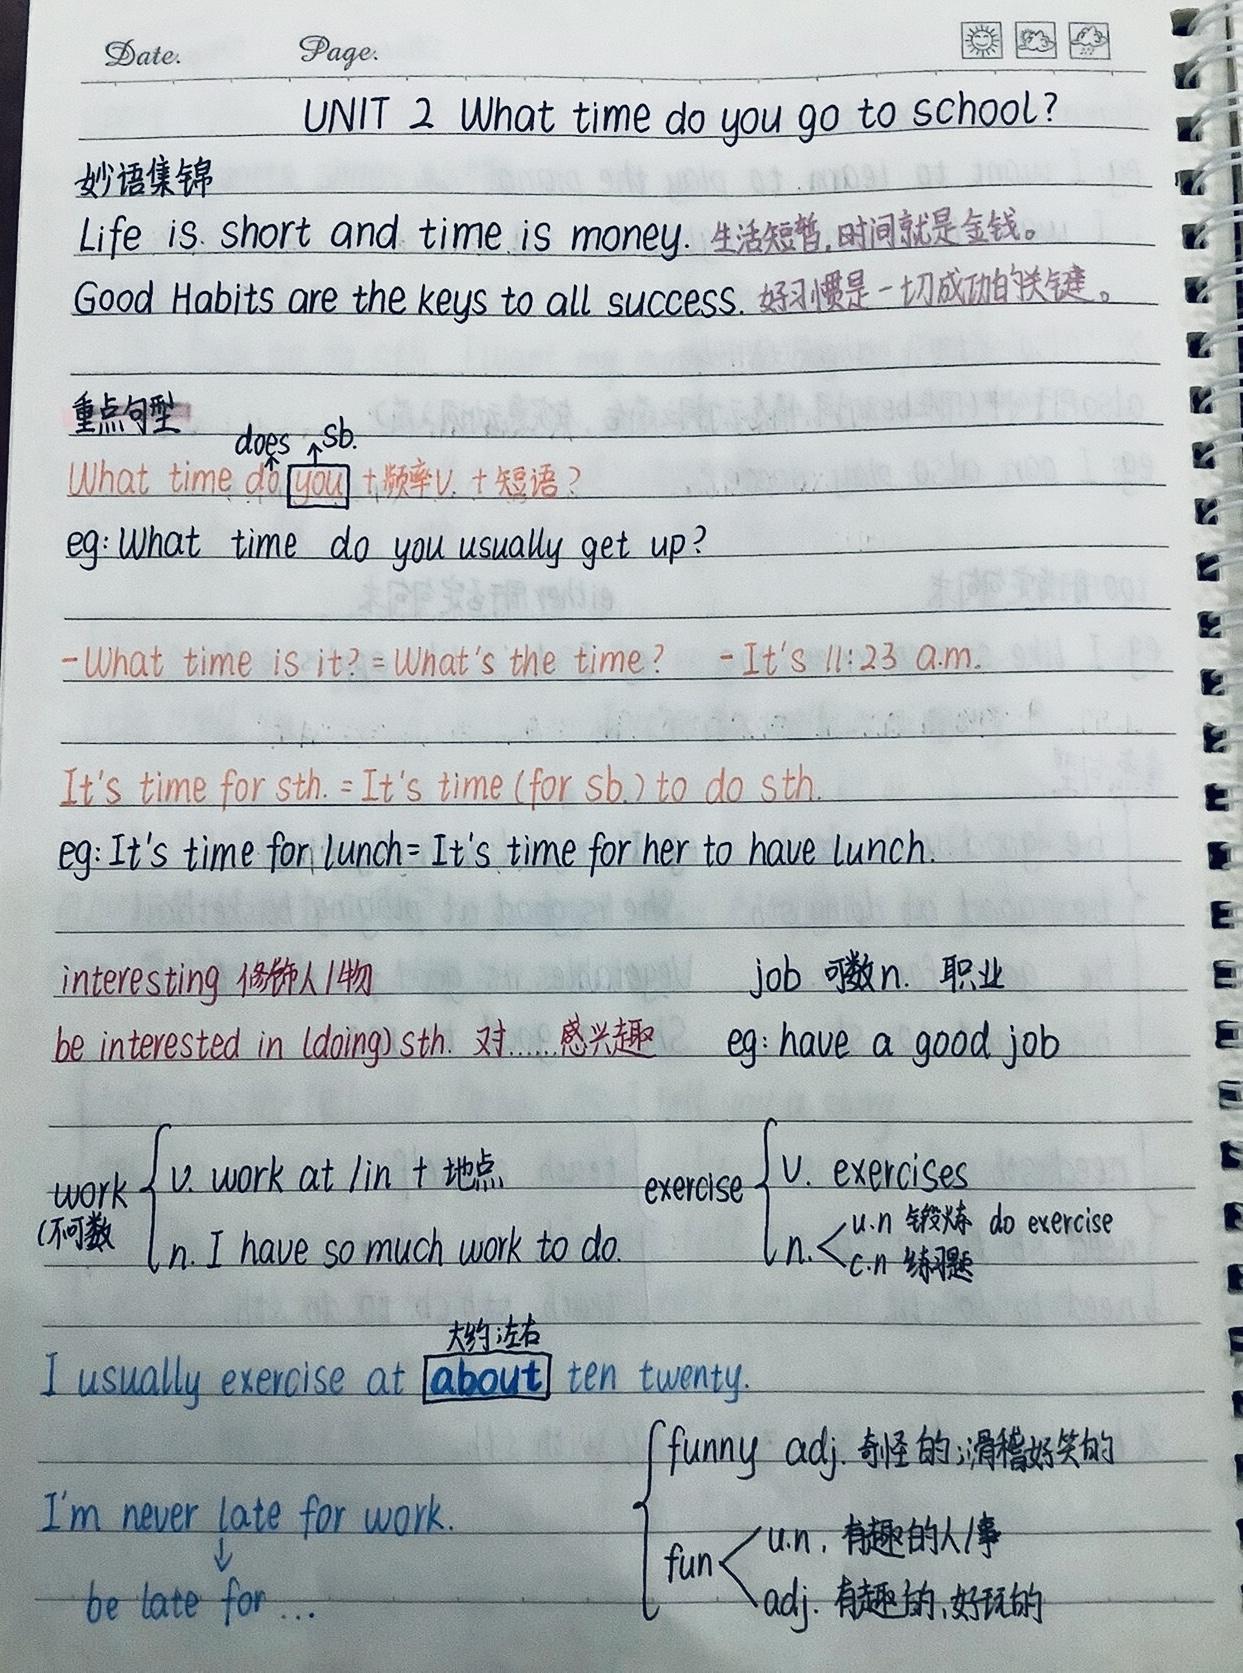 Date. Page.
UNIT 2 What time do you go to school?
妙语集锦
Life is short and time is money. 生活短暂,时间就是金钱。
Good Habits are the keys to all success. 好习惯是一切成功的关键。
重点句型
does sb.
What time do you +频率v. +短语?
eg: What time do you usually get up?
-What time is it? = What's the time? -It's 11:23 a.m.
It's time for sth. = It's time (for sb.) to do sth.
eg: It's time for lunch= It's time for her to have lunch.
interesting 修饰人/物 job 可数n. 职业
be interested in (doing) sth. 对......感兴趣 eg: have a good job
v. work at /in + 地点 v. exercises
work exercise
(不可数 u.n 锻炼 do exercise
n. I have so much work to do. n.
c.n 练习题
大约;左右
I usually exercise at about ten twenty.
funny adj. 奇怪的;滑稽好笑的
I'm never late for work.
u.n. 有趣的人/事
fun
be late for... adj. 有趣的、好玩的